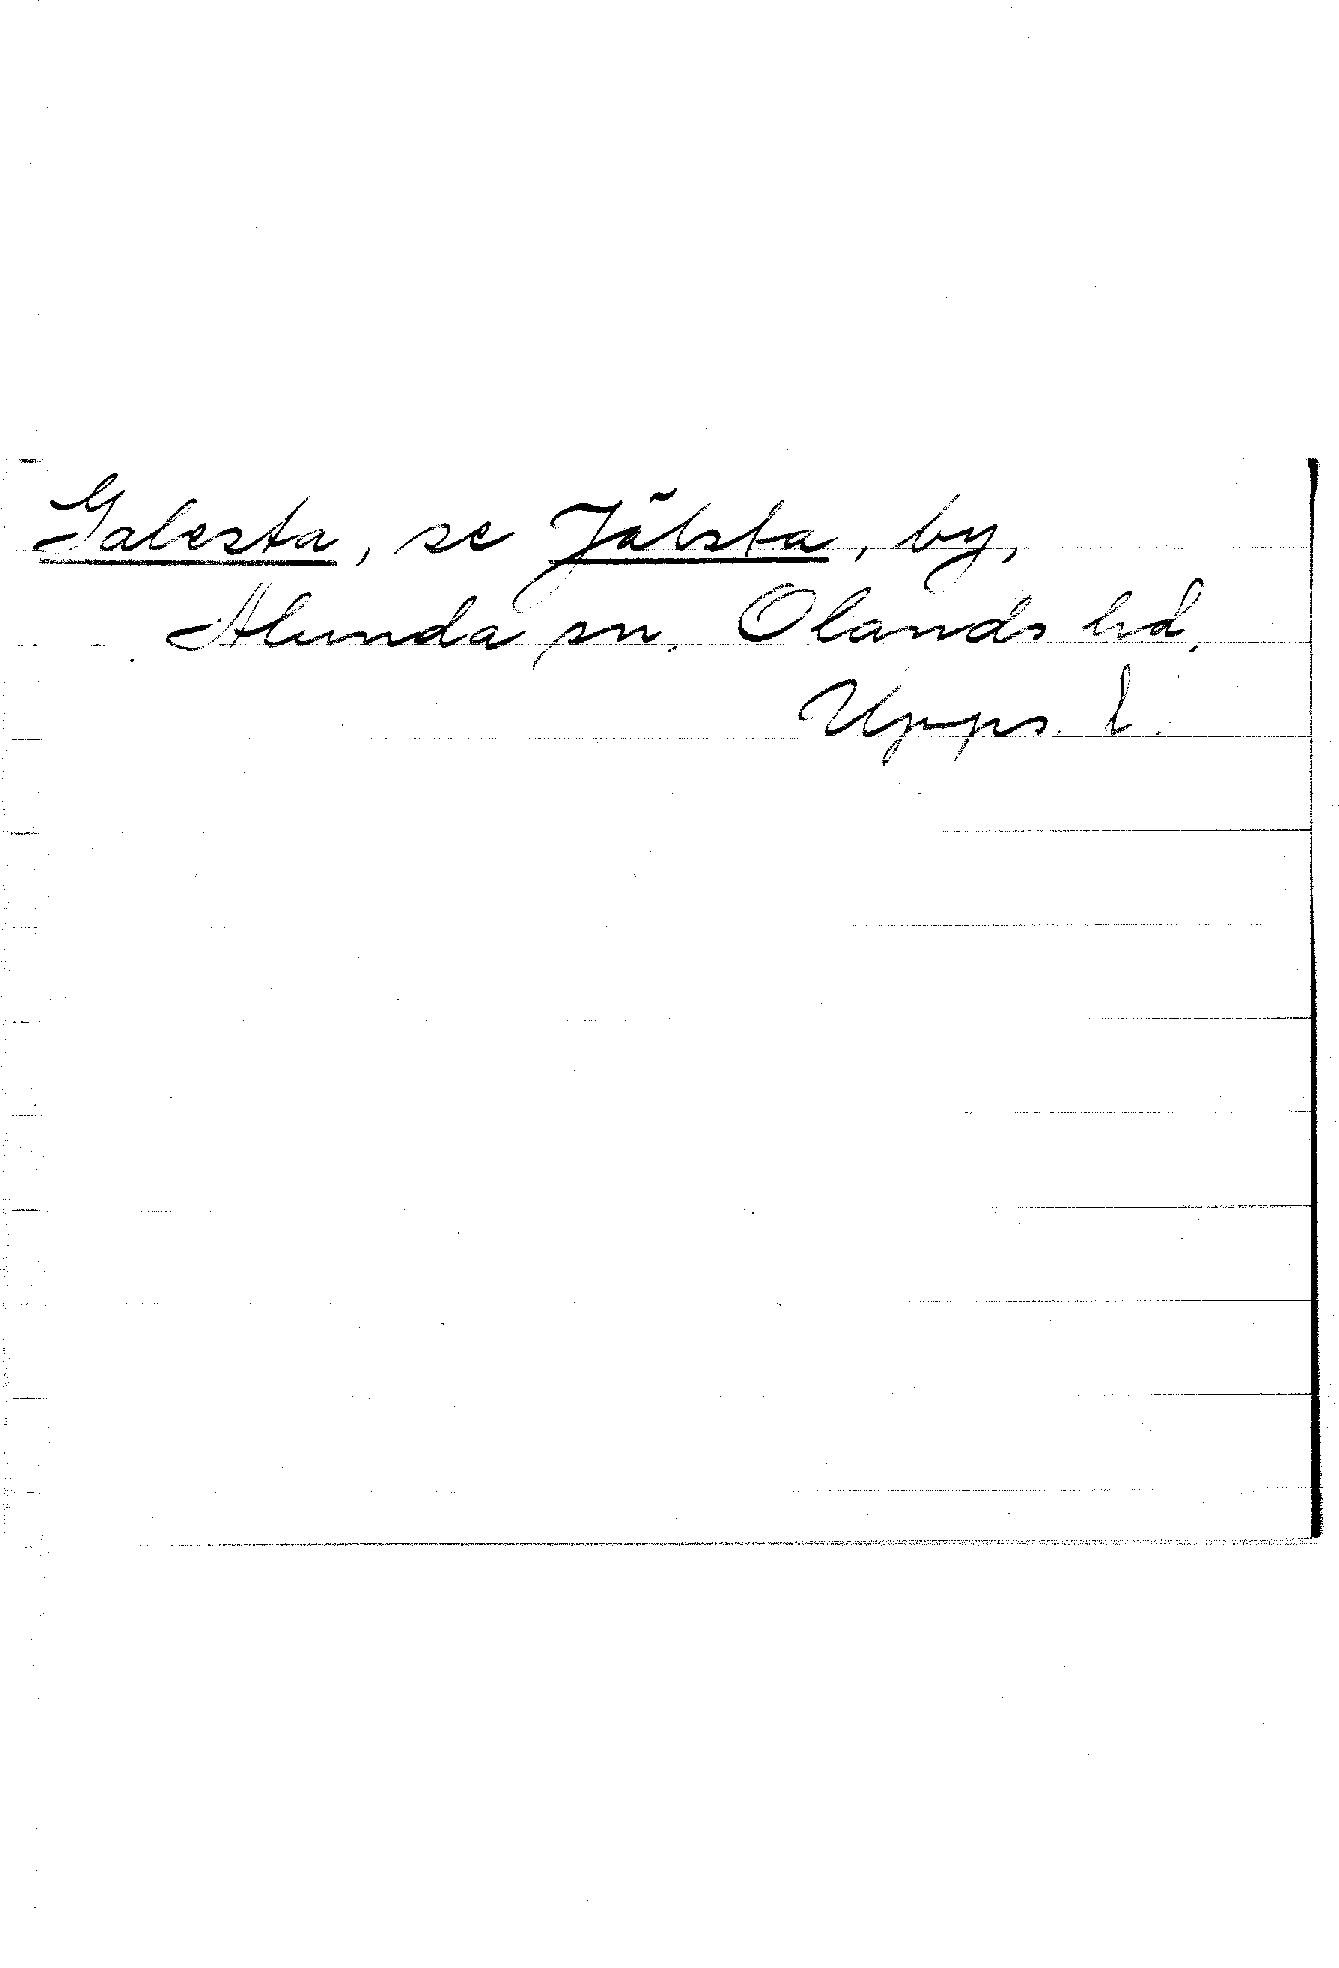 Galesta, se Jälsta, by,
Alunda sn. Olands hd,
Upps. l.